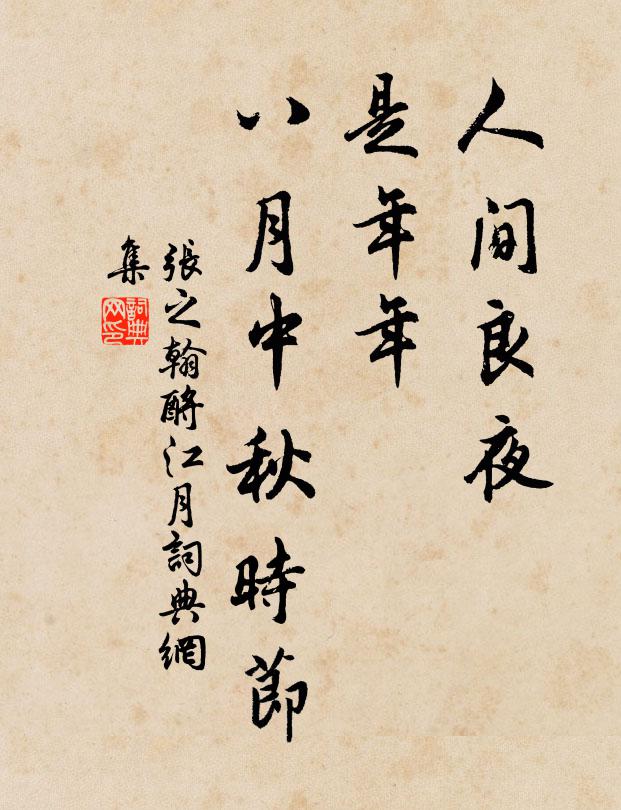 人間良夜
是年年
八月中秋時節
張之翰酹江月詞典網
集
詞典網印